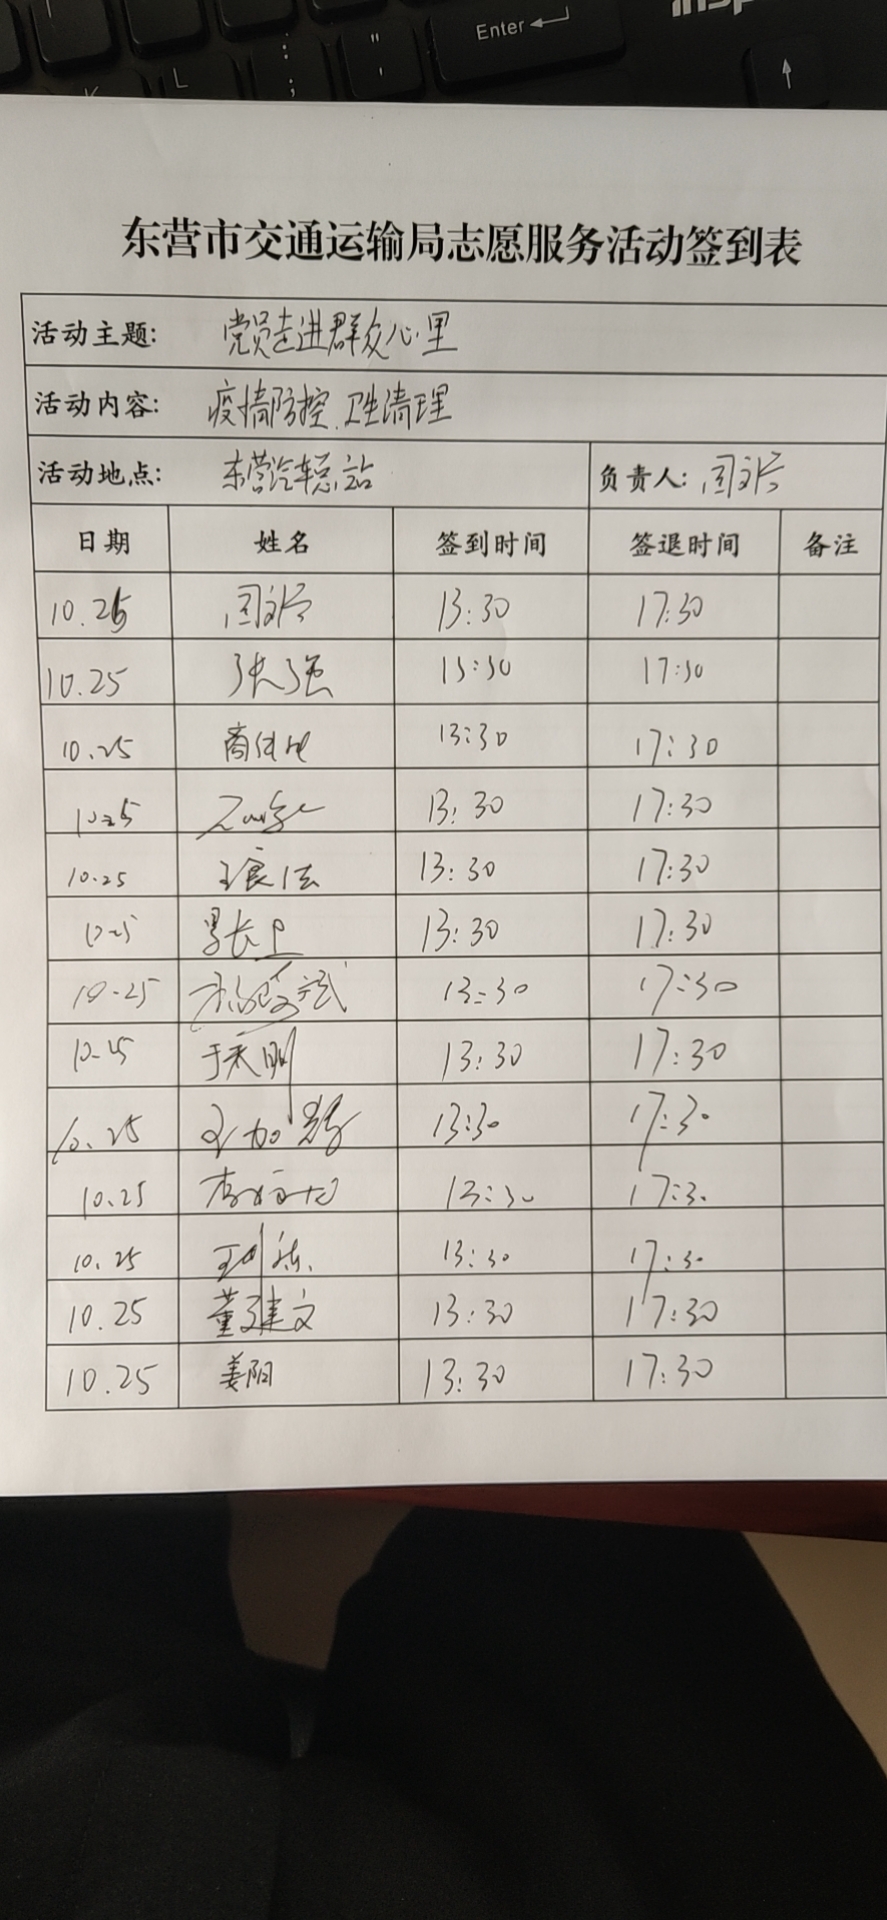 Enter
L
东营市交通运输局志愿服务活动签到表
活动主题: 党员走进群众心里
活动内容: 疫情防控、卫生清理
活动地点: 东营汽车总站 负责人:
日期 姓名 签到时间 签退时间 备注
10.25 13:30 17:30
10.25 张强 13:30 17:30
10.25 13:30 17:30
10.25 13:30 17:30
10.25 13:30 17:30
10.25 13:30 17:30
10.25 13:30 17:30
10.25 13:30 17:30
10.25 13:30 17:30
10.25 13:30 17:30
10.25 13:30 17:30
10.25 董建文 13:30 17:30
10.25 姜阳 13:30 17:30